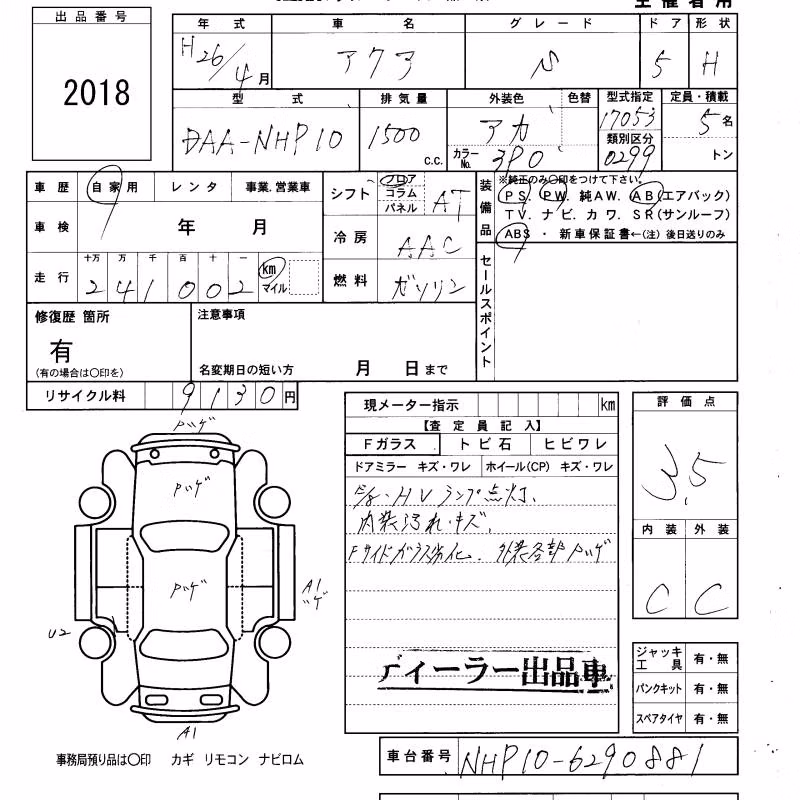 主催者用
出品番号
2018
年式 車名 グレード ドア 形状
H26/4月 アクア S 5 H
型式 排気量 外装色 色替 型式指定 定員・積載
DAA-NHP10 1500 c.c. アカ 17053 5名
カラーNo. 3P0 類別区分 0299 トン
車歴 自家用 レンタ 事業.営業車
車検 年 月
走行 十万 万 千 百 十 一
241002 km マイル
シフト フロア コラム パネル AT
冷房 AAC
燃料 ガソリン
装備品 ※純正のみ〇印をつけて下さい。
PS. PW. 純AW. AB(エアバック)
TV. ナビ. カワ. SR(サンルーフ)
ABS ・ 新車保証書←(注) 後日送りのみ
セールスポイント
修復歴 箇所
有
(有の場合は〇印を)
注意事項
名変期日の短い方 月 日まで
リサイクル料 9130円
現メーター指示 km
【査定員記入】
Fガラス トビ石 ヒビワレ
ドアミラー キズ・ワレ ホイール(CP) キズ・ワレ
HVランプ点灯.
内装汚れ・キズ.
Fサイドガラス劣化. 外装各部ハゲ
ディーラー出品車
評価点
3.5
内装 外装
C C
ジャッキ工具 有・無
パンクキット 有・無
スペアタイヤ 有・無
ハゲ
ハゲ
ハゲ
A1
U2
A1
事務局預り品は〇印 カギ リモコン ナビロム
車台番号 NHP10-6290881